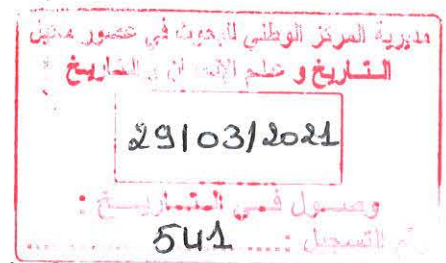 مديرية المركز الوطني للبحوث في عصور ما قبل
التاريخ و علم الإنسان و التاريخ
29/03/2021
وصول في التاريخ :
رقم التسجيل : ..... 541 .....